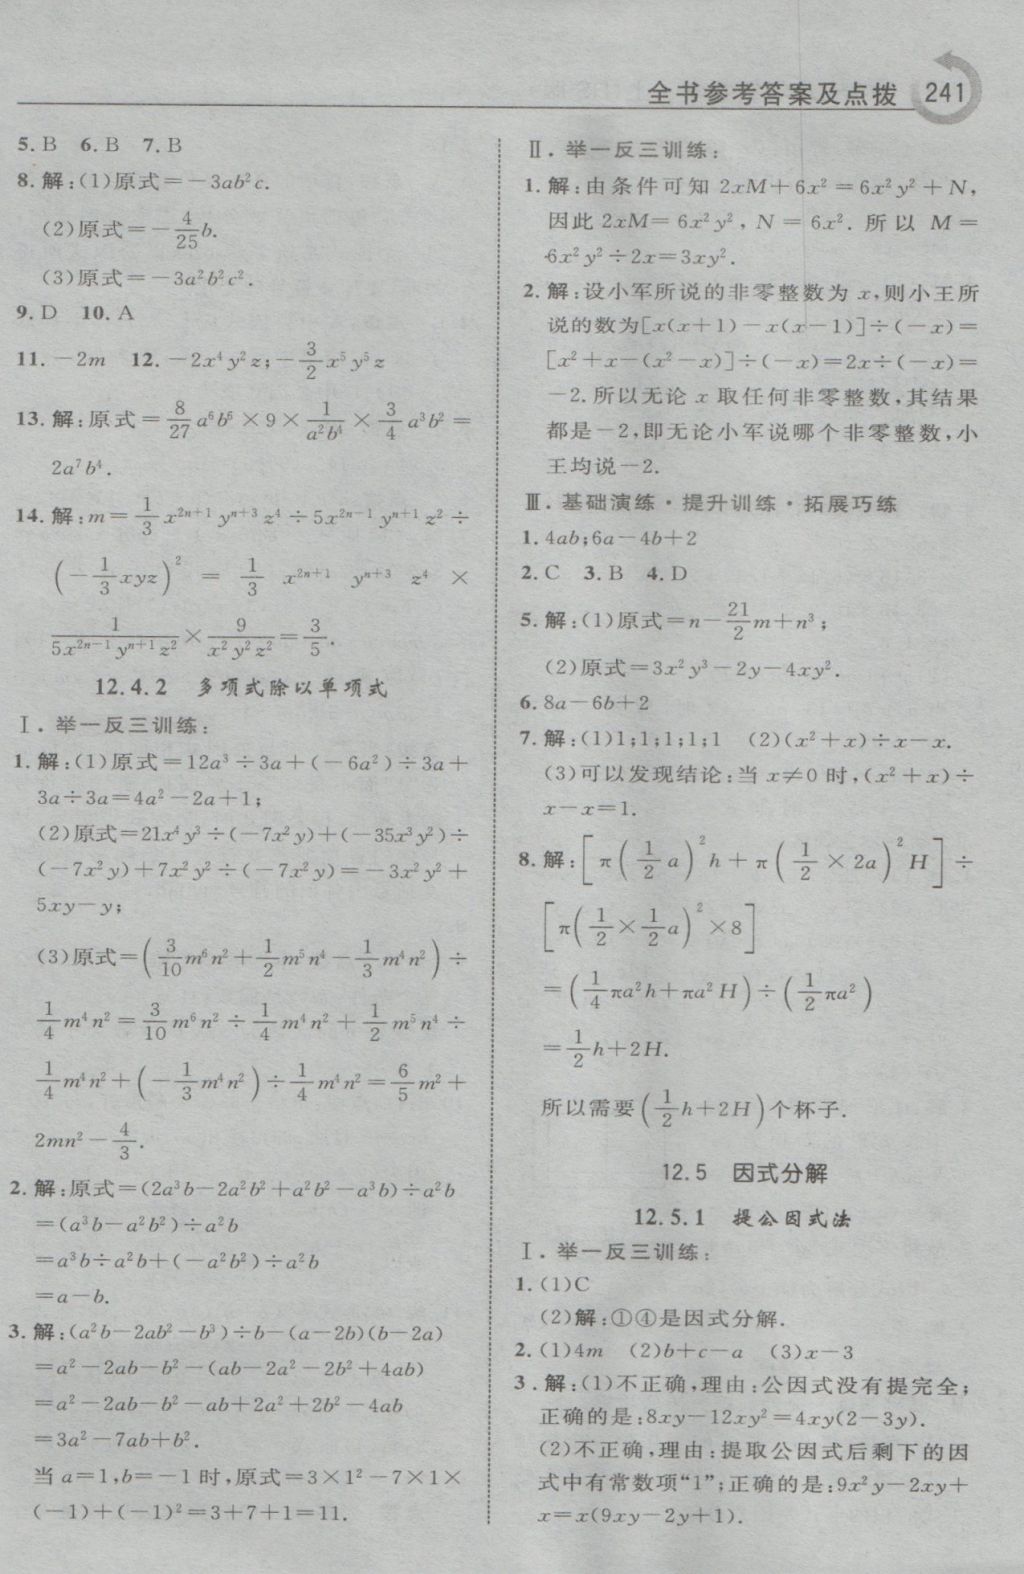 全书参考答案及点拨 241
5. B 6. B 7. B
8. 解:(1)原式=-3ab²c.
(2)原式=-\frac{4}{25}b.
(3)原式=-3a²b²c².
9. D 10. A
11. -2m 12. -2x⁴y²z;-\frac{3}{2}x⁵y⁵z
13. 解:原式=\frac{8}{27}a⁶b⁶×9×\frac{1}{a²b⁴}×\frac{3}{4}a³b²=
2a⁷b⁴.
14. 解:m=\frac{1}{3}x^{2n+1}y^{n+3}z⁴÷5x^{2n-1}y^{n+1}z²÷
(-\frac{1}{3}xyz)² = \frac{1}{3} x^{2n+1} y^{n+3} z⁴ ×
\frac{1}{5x^{2n-1}y^{n+1}z²}×\frac{9}{x²y²z²}=\frac{3}{5}.
12.4.2 多项式除以单项式
Ⅰ. 举一反三训练:
1. 解:(1)原式=12a³÷3a+(-6a²)÷3a+
3a÷3a=4a²-2a+1;
(2)原式=21x⁴y³÷(-7x²y)+(-35x³y²)÷
(-7x²y)+7x²y²÷(-7x²y)=-3x²y²+
5xy-y;
(3)原式=(\frac{3}{10}m⁶n²+\frac{1}{2}m⁵n⁴-\frac{1}{3}m⁴n²)÷
\frac{1}{4}m⁴n²=\frac{3}{10}m⁶n²÷\frac{1}{4}m⁴n²+\frac{1}{2}m⁵n⁴÷
\frac{1}{4}m⁴n²+(-\frac{1}{3}m⁴n²)÷\frac{1}{4}m⁴n²=\frac{6}{5}m²+
2mn²-\frac{4}{3}.
2. 解:原式=(2a³b-2a²b²+a²b²-a³b)÷a²b
=(a³b-a²b²)÷a²b
=a³b÷a²b+(-a²b²)÷a²b
=a-b.
3. 解:(a²b-2ab²-b³)÷b-(a-2b)(b-2a)
=a²-2ab-b²-(ab-2a²-2b²+4ab)
=a²-2ab-b²-ab+2a²+2b²-4ab
=3a²-7ab+b².
当a=1,b=-1时,原式=3×1²-7×1×
(-1)+(-1)²=3+7+1=11.
Ⅱ. 举一反三训练:
1. 解:由条件可知 2xM+6x²=6x²y²+N,
因此 2xM=6x²y², N=6x². 所以 M=
6x²y²÷2x=3xy².
2. 解:设小军所说的非零整数为 x,则小王所
说的数为[x(x+1)-x(x-1)]÷(-x)=
[x²+x-(x²-x)]÷(-x)=2x÷(-x)=
-2.所以无论 x 取任何非零整数,其结果
都是-2,即无论小军说哪个非零整数,小
王均说-2.
Ⅲ. 基础演练·提升训练·拓展巧练
1. 4ab;6a-4b+2
2. C 3. B 4. D
5. 解:(1)原式=n-\frac{21}{2}m+n³;
(2)原式=3x²y³-2y-4xy².
6. 8a-6b+2
7. 解:(1)1;1;1;1;1 (2)(x²+x)÷x-x.
(3)可以发现结论:当 x≠0 时,(x²+x)÷
x-x=1.
8. 解:[π(\frac{1}{2}a)²h+π(\frac{1}{2}×2a)²H]÷
[π(\frac{1}{2}×\frac{1}{2}a)²×8]
=(\frac{1}{4}πa²h+πa²H)÷(\frac{1}{2}πa²)
=\frac{1}{2}h+2H.
所以需要(\frac{1}{2}h+2H)个杯子.
12.5 因式分解
12.5.1 提公因式法
Ⅰ. 举一反三训练:
1. (1)C
(2)解:①④是因式分解.
2. (1)4m (2)b+c-a (3)x-3
3. 解:(1)不正确,理由:公因式没有提完全;
正确的是:8xy-12xy²=4xy(2-3y).
(2)不正确,理由:提取公因式后剩下的因
式中有常数项“1”;正确的是:9x²y-2xy+
x=x(9xy-2y+1).